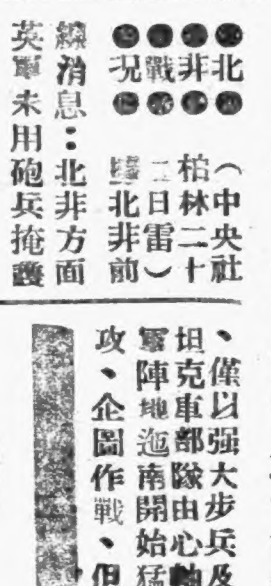 北非戰況
（中央社
柏林二十
二日電）
據北非前
線消息：北非方面
英軍未用砲兵掩護
、僅以强大步兵及
坦克車部隊由心軸
軍陣地迤南開始猛
攻、企圖作戰、但